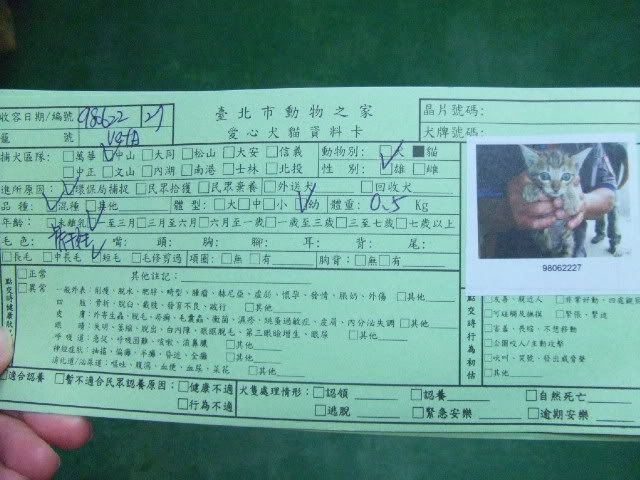 臺北市動物之家
愛心犬貓資料卡
收容日期/編號 980622 27
晶片號碼:
籠 號
犬牌號碼:
捕犬區隊: □萬華 □中山 □大同 □松山 □大安 □信義 動物別: □犬 ■貓
□中正 □文山 □內湖 □南港 □士林 □北投 性 別: □雄 □雌
進所原因: □環保局捕捉 □民眾拾獲 □民眾棄養 □外送犬 □回收犬
品 種: □混種 □其他 體 型: □大 □中 □小 □幼 體重: 0.5 Kg
年齡: □未離乳 □一至三月 □三月至六月 □六月至一歲 □一歲至三歲 □三至七歲 □七歲以上
毛色: 嘴: 頭: 胸: 腳: 耳: 背: 尾:
□長毛 □中長毛 □短毛 □毛修剪過 項圈: □無 □有 胸背: □無 □有
98062227
點交時健康狀
□正常 其他註記:
□異常 一般外表:削瘦、脫水、肥胖、畸型、腫瘤、赫尼亞、虛弱、懷孕、發情、脹奶、外傷 □其他
四 肢:骨折、脫臼、截肢、發育不良、跛行 □其他
皮 膚:外寄生蟲、脫毛、疥癬、毛囊蟲、黴菌、濕疹、跳蚤過敏症、皮屑、內分泌失調 □其他
眼 睛:失明、萎縮、脫出、白內障、眼瞼脫毛、第三眼瞼增生、眼屎 □其他
呼吸道:急促、呼吸困難、咳嗽、流鼻膿 □其他
神經症狀:抽搐、偏癱、半癱、昏迷、全癱 □其他
消化道/泌尿道:嘔吐、腹瀉、血便、血尿、菜花 □其他
點交時行為初估
□友善、親近人 □非常好動、四處觀
□可碰觸及撫摸 □緊張、緊迫
□害羞、畏縮、不想移動
□公開咬人/主動攻擊
□吠叫、哭號、發出威脅聲
□其他
□適合認養 □暫不適合民眾認養原因: □健康不適 犬隻處理情形: □認領 □認養 □自然死亡
□行為不適 □逃脫 □緊急安樂 □逾期安樂